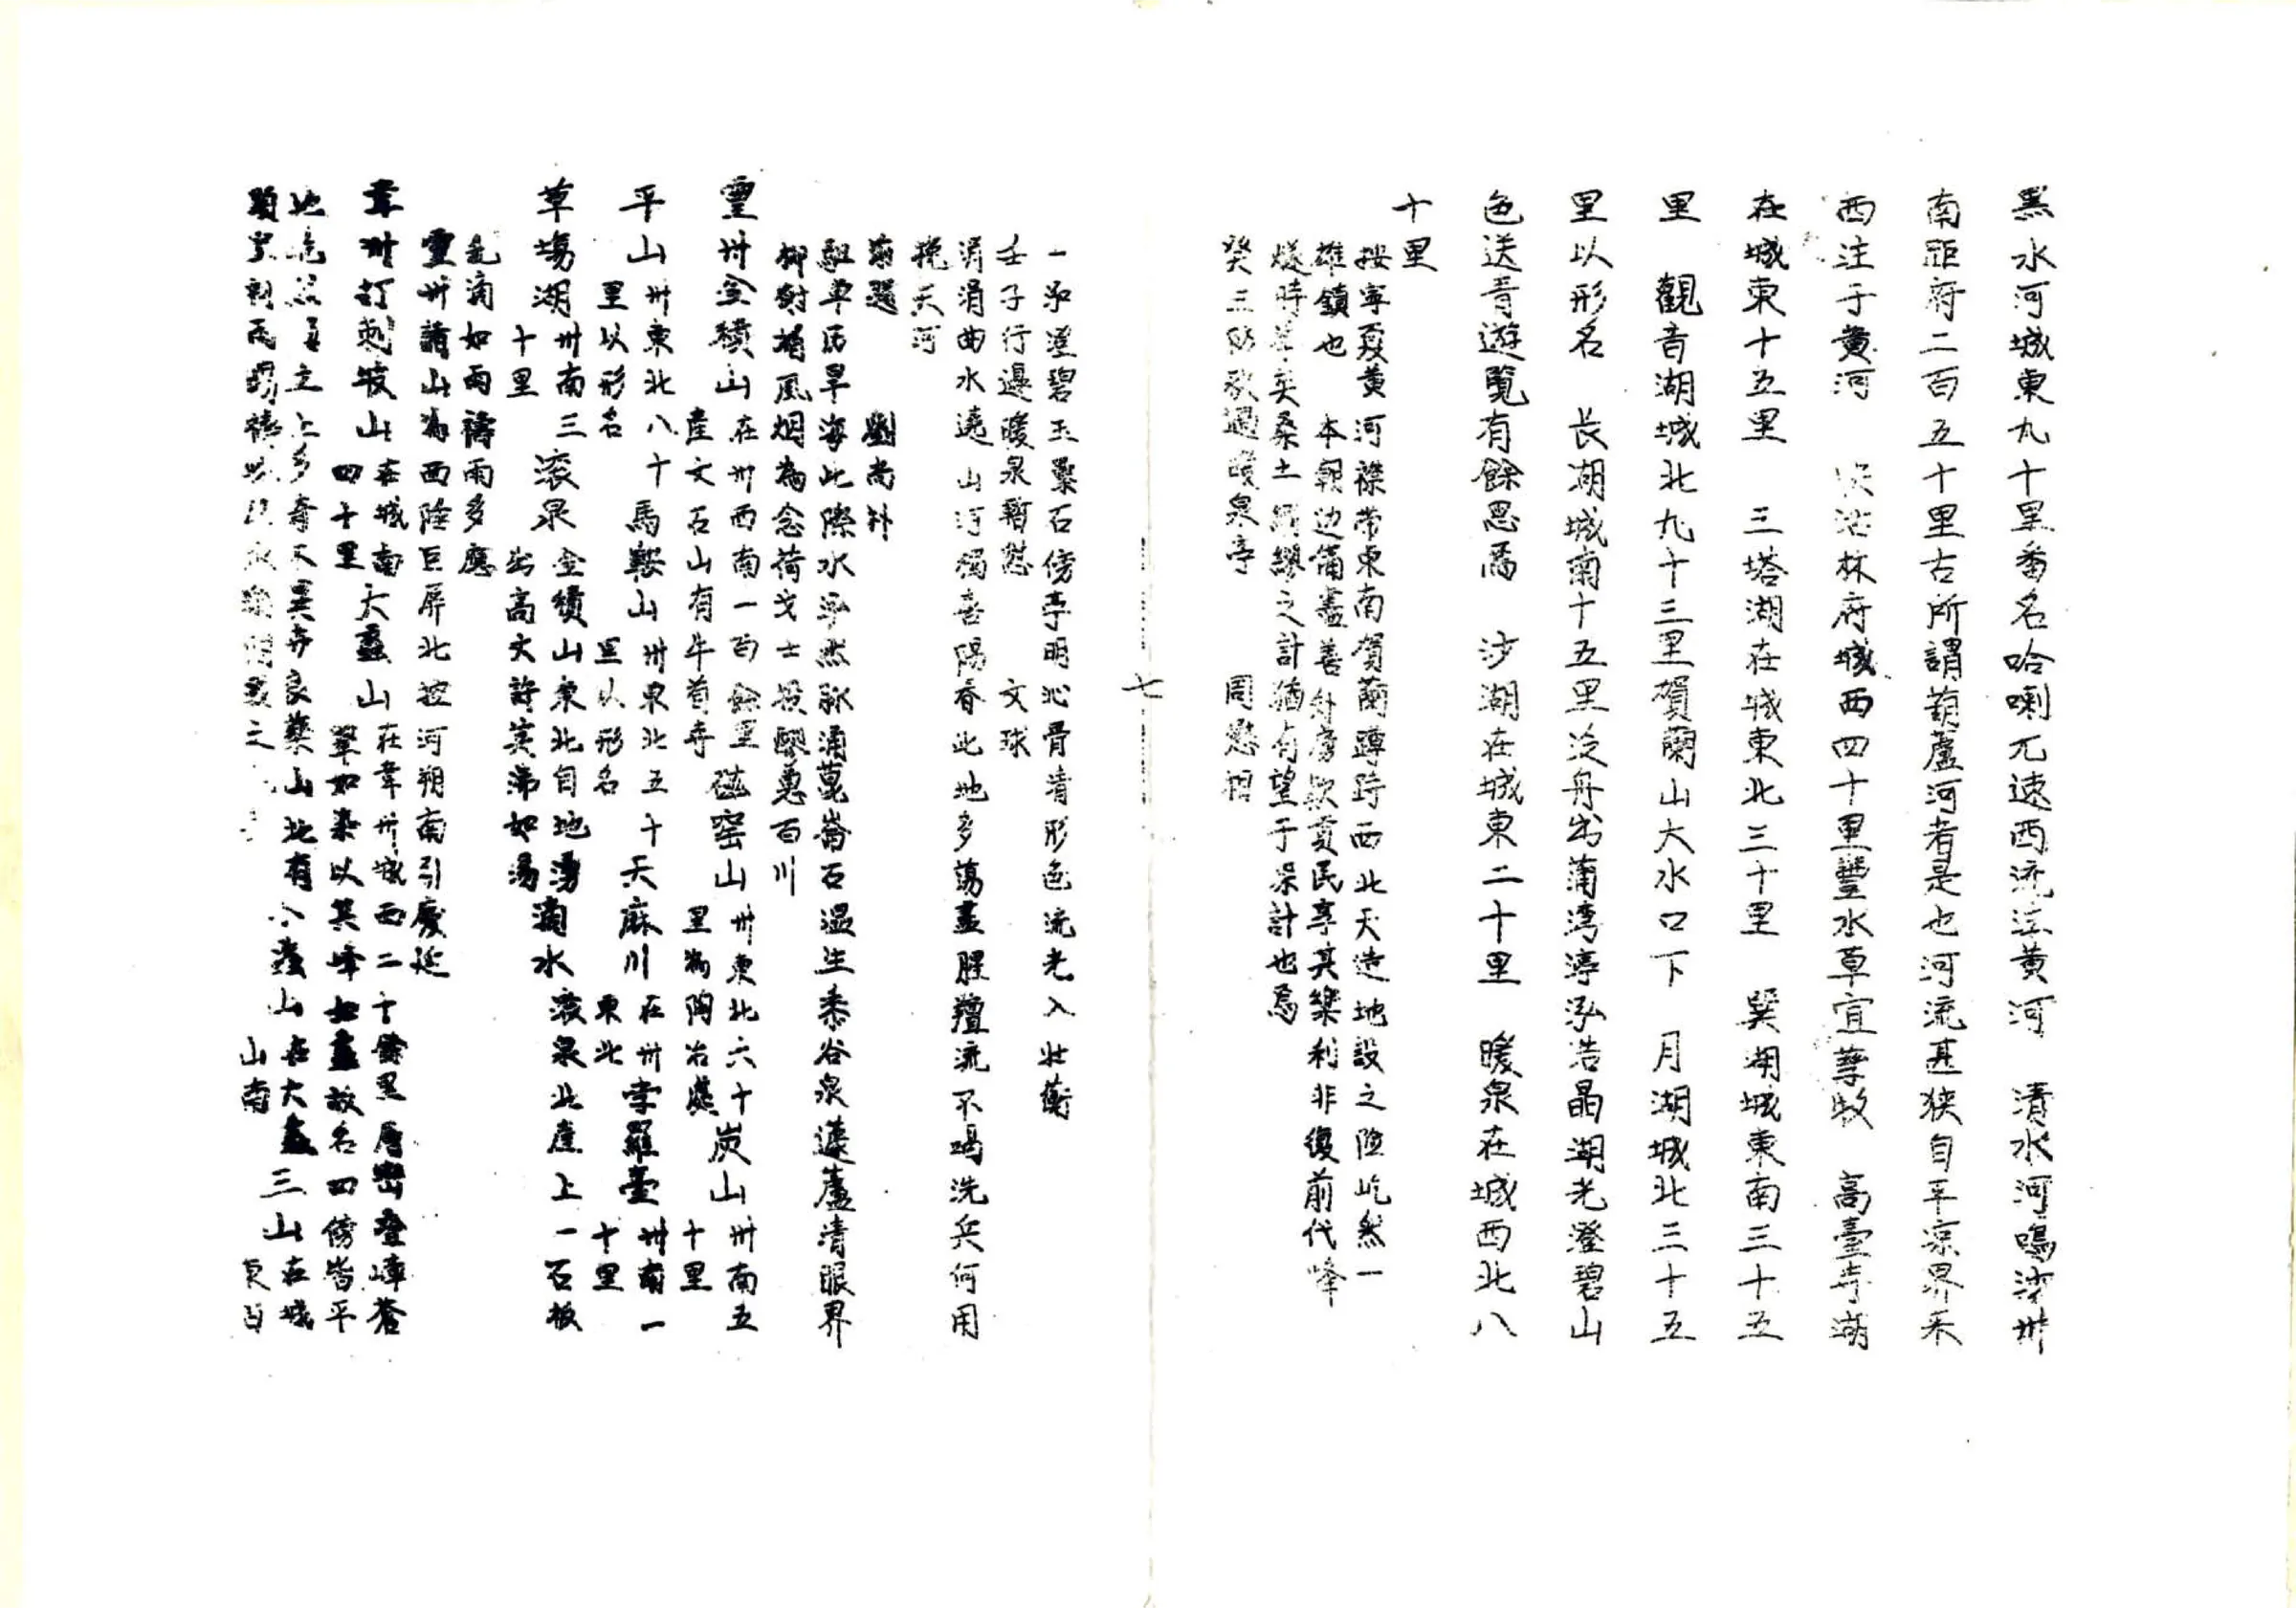 黑水河城東九十里番名哈喇兀速西流注黃河　清水河鳴沙州
南距府二百五十里古所謂葫蘆河者是也河流甚狹自平凉界来
西注于黄河　沙林府城西四十里豐水草宜孳牧　高臺寺湖
在城東十五里　三塔湖在城東北三十里　巽湖城東南三十五
里　觀音湖城北九十三里賀蘭山大水口下　月湖城北三十五
里以形名　长湖城南十五里泛舟出蒲湾渟泓浩晶湖光澄碧山
色送青遊覽有餘思焉　沙湖在城東二十里　暖泉在城西北八
十里
按寧夏黄河襟帶東南賀蘭蹲峙西北天造地設之險屹然一
雄鎮也　本朝边備盡善外虜欵貢民享其樂利非復前代烽
燧時矣桑土綢繆之計猶有望于深計也焉
癸三防秋過暖泉亭　周懋相
七
一泓澄碧玉纍石傍亭明沁骨清形色流光入壮衡
壬子行邊暖泉暫憇　文球
涓涓曲水遶山河獨喜陽春此地多蕩盡腥羶流不竭洗兵何用
挽天河
前題　劉尚朴
駐車历旱海此際水泓然脉涌崑崙石温生黍谷泉蓬廬清眼界
柳樹補風烟為念荷戈士投醪意百川
靈州金積山在州西南一百餘里
産文石山有牛首寺　磁窑山州東北六十
里為陶冶處　炭山州南五
十里
平山州東北八十
里以形名　馬鞍山州東北五十
里以形名　天麻川在州
東北　孛羅臺州南一
十里
草塲湖州南三
十里　滚泉金積山東北自地湧
出高丈許其沸如湯　滴水滚泉北崖上一石板
乱滴如雨禱雨多應
靈州諸山為西陲巨屏北控河朔南引慶延
韋州打刺坡山在城南
四十里　大蠡山在韋州城西二十餘里層巒叠嶂蒼
翠如染以其峰如蠡故名四傍皆平
地多奇木異卉良藥山北有　小蠡山在大蠡
山南　三山在城
東百